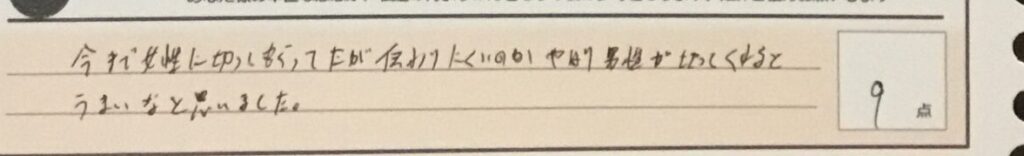 今まで女性に切ってもらってたが伝わりにくいのか やはり男性が切ってくれると
うまいなと思いました。
9 点